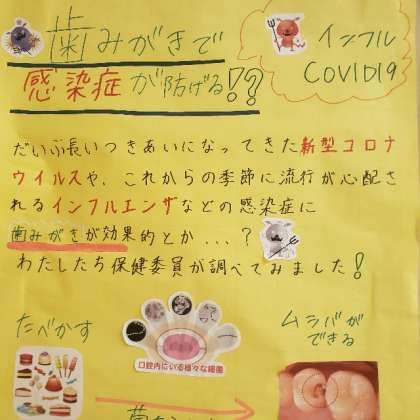 歯みがきで
感染症が防げる!??
インフル
COVID19
だいぶ長いつきあいになってきた新型コロナ
ウイルスや、これからの季節に流行が心配さ
れるインフルエンザなどの感染症に
歯みがきが効果的とか...？
わたしたち保健委員が調べてみました！
たべかす
口腔内にいる様々な細菌
ムシバが
できる